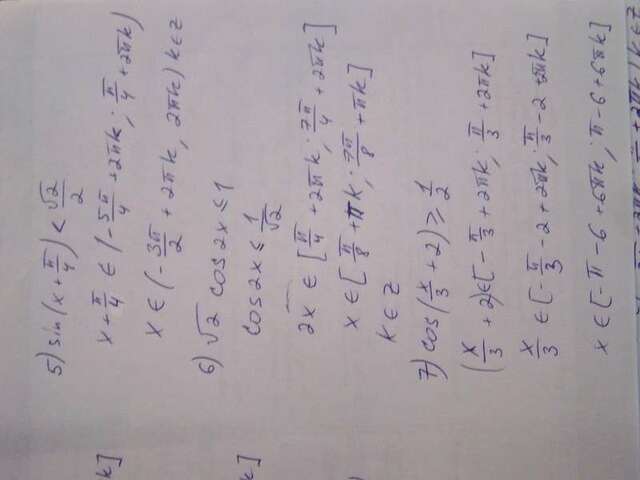 5) sin(x + π/4) < √2/2
x + π/4 ∈ (-5π/4 + 2πk; π/4 + 2πk)
x ∈ (-3π/2 + 2πk, 2πk) k ∈ z
6) √2 cos2x ≤ 1
cos2x ≤ 1/√2
2x ∈ [π/4 + 2πk; 7π/4 + 2πk]
x ∈ [π/8 + πk; 7π/8 + πk]
k ∈ z
7) cos(x/3 + 2) ≥ 1/2
(x/3 + 2) ∈ [-π/3 + 2πk; π/3 + 2πk]
x/3 ∈ [-π/3 - 2 + 2πk; π/3 - 2 + 2πk]
x ∈ [-π - 6 + 6πk; π - 6 + 6πk]
k]
k]
)